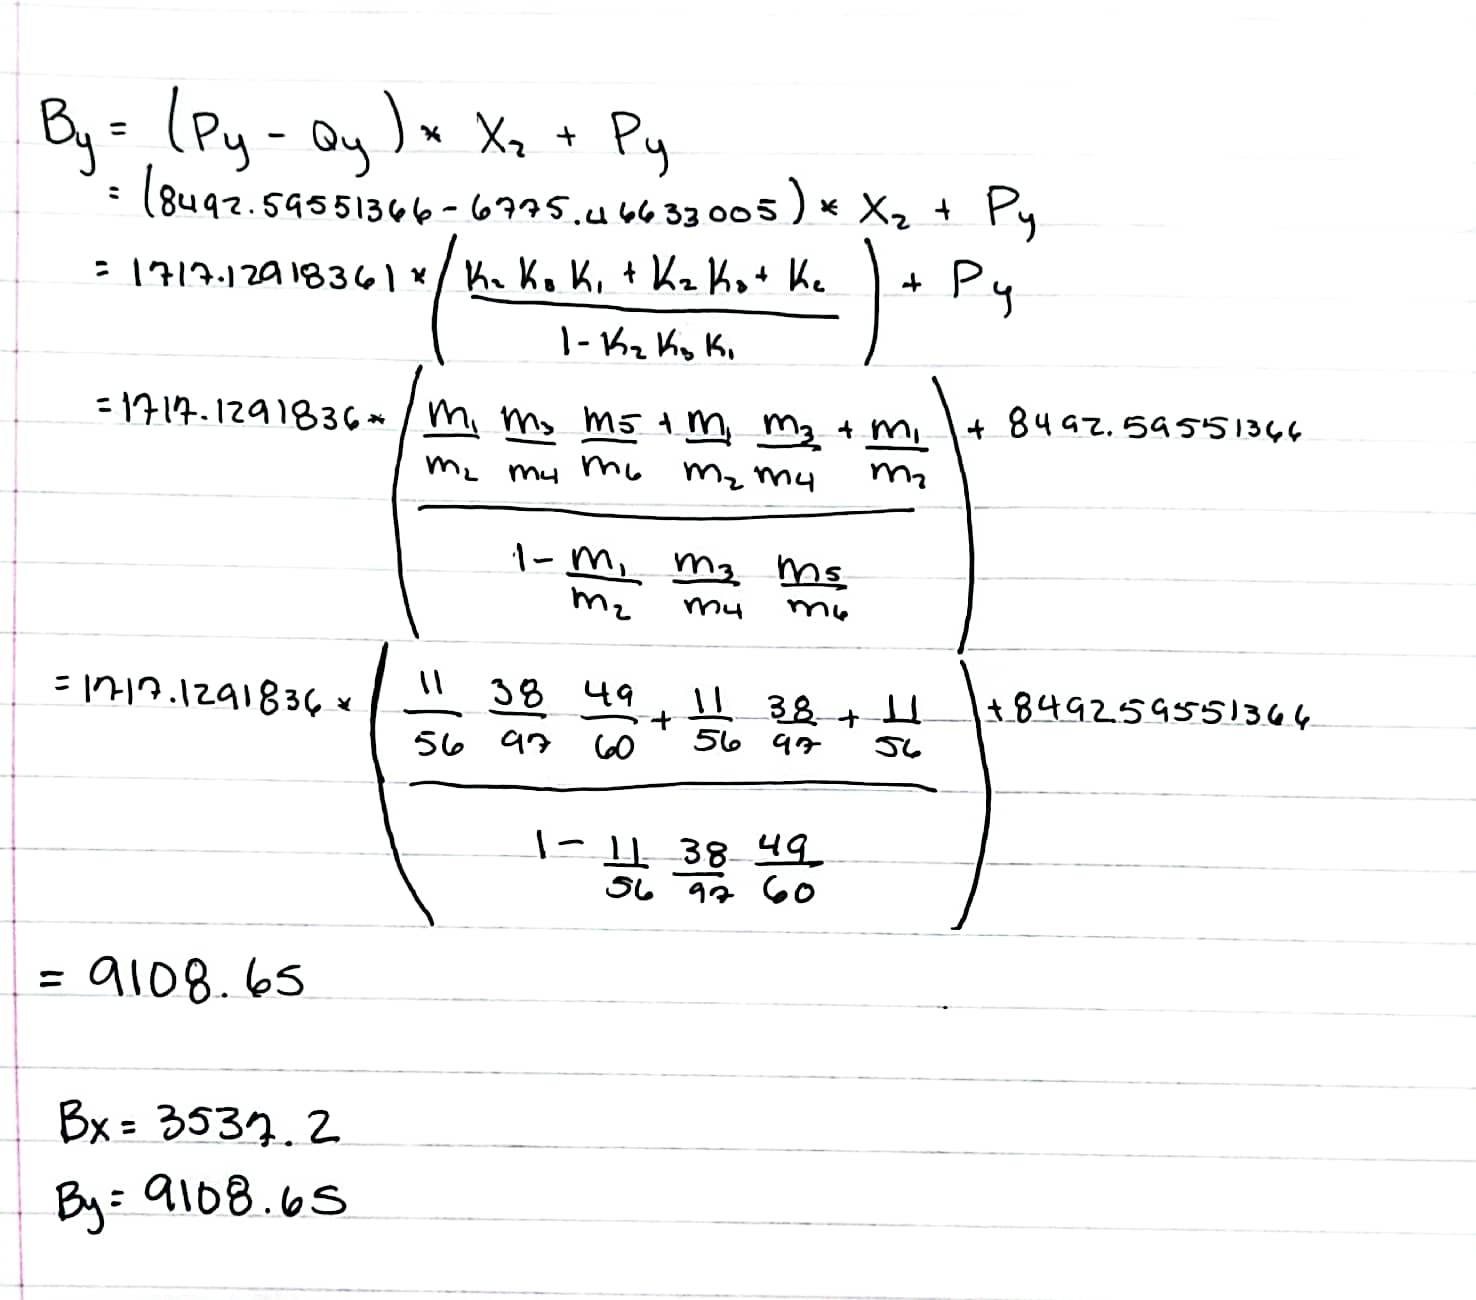 By = (Py - Qy) * X₂ + Py
= (8492.59551366 - 6775.46633005) * X₂ + Py
= 1717.12918361 * ((K₂ K₀ K₁ + K₂ K₀ + K₂) / (1 - K₂ K₀ K₁)) + Py
= 1717.1291836 * ((m₁/m₂ m₃/m₄ m₅/m₆ + m₁/m₂ m₃/m₄ + m₁/m₂) / (1 - m₁/m₂ m₃/m₄ m₅/m₆)) + 8492.59551366
= 1717.1291836 * ((11/56 38/97 49/60 + 11/56 38/97 + 11/56) / (1 - 11/56 38/97 49/60)) + 8492.59551366
= 9108.65
Bx = 3537.2
By = 9108.65